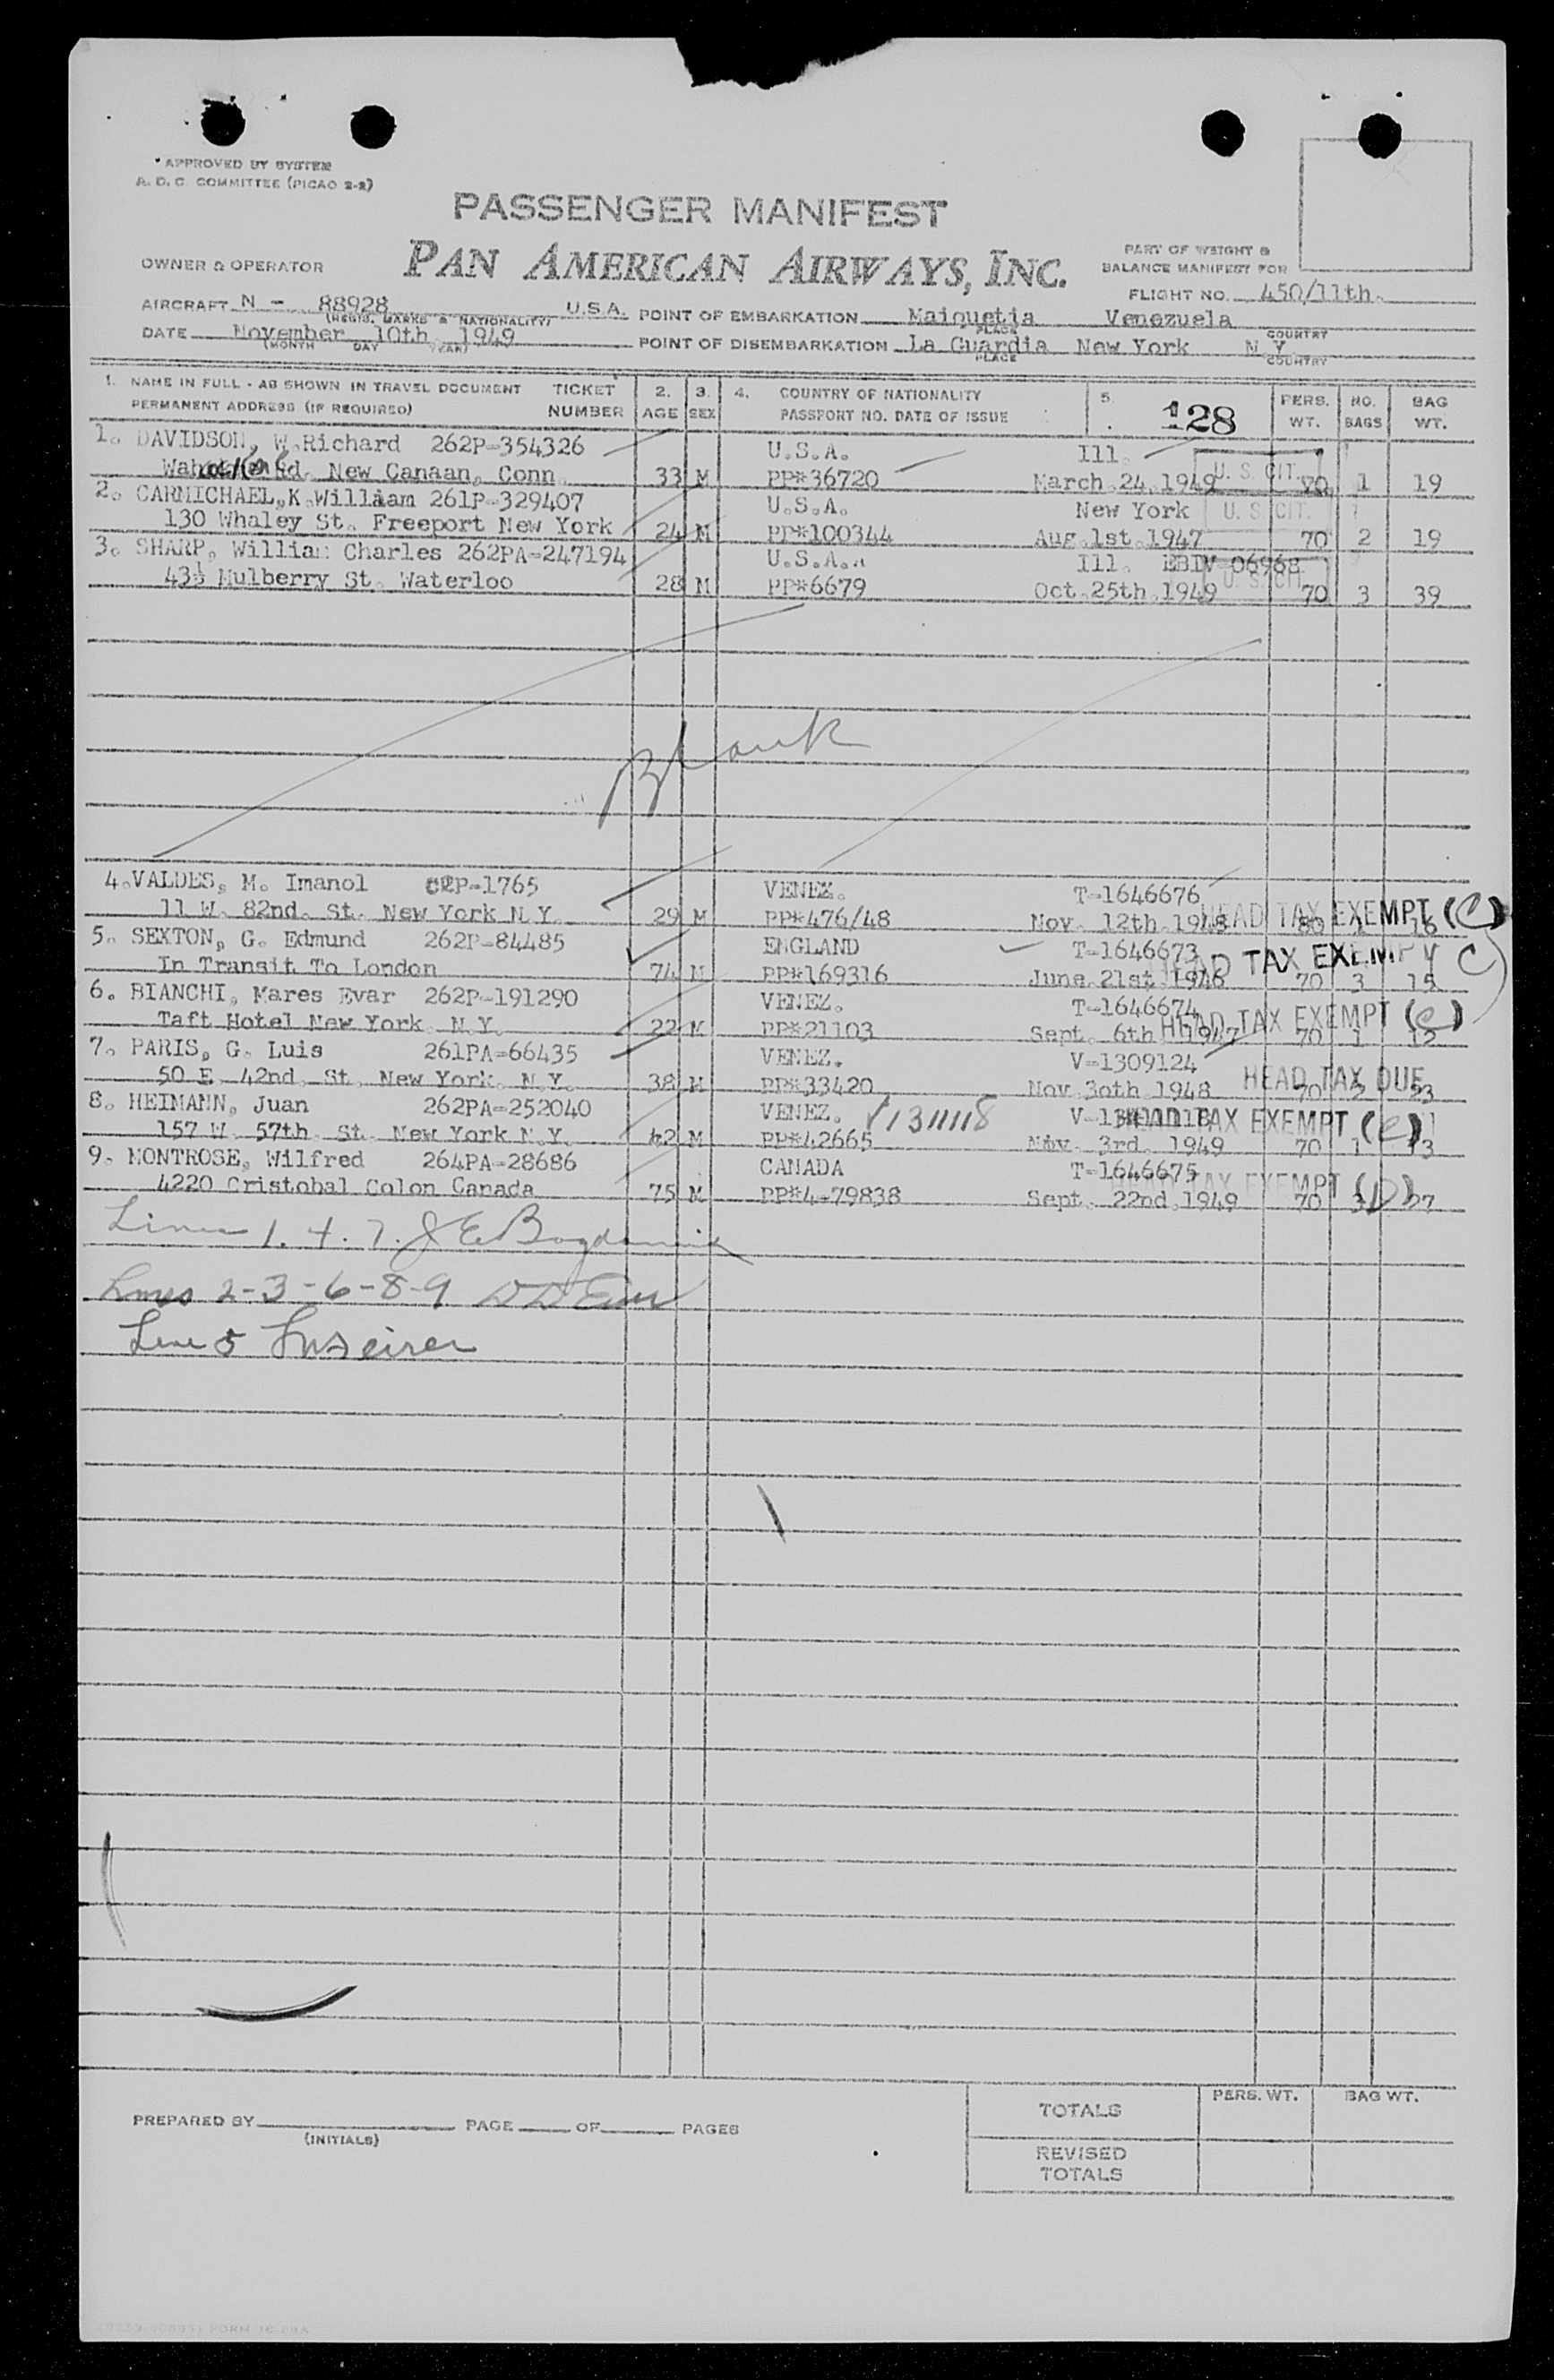 APPROVED BY SYSTEM
A. D. C. COMMITTEE (PICAO 2-2)
PASSENGER MANIFEST
OWNER & OPERATOR PAN AMERICAN AIRWAYS, INC.
PART OF WEIGHT &
BALANCE MANIFEST FOR
FLIGHT NO. 450/11th.
AIRCRAFT N - 88928 U.S.A. POINT OF EMBARKATION Maiquetia Venezuela
(REGIS. MARKS & NATIONALITY) PLACE COUNTRY
DATE November 10th. 1949 POINT OF DISEMBARKATION La Guardia New York N Y
(MONTH DAY YEAR) PLACE COUNTRY
1. NAME IN FULL - AS SHOWN IN TRAVEL DOCUMENT TICKET 2. 3. 4. COUNTRY OF NATIONALITY 5. 128 PERS. NO. BAG
PERMANENT ADDRESS (IF REQUIRED) NUMBER AGE SEX PASSPORT NO. DATE OF ISSUE WT. BAGS WT.
1. DAVIDSON, W.Richard 262P-354326 U.S.A. Ill.
Rd. New Canaan, Conn. 33 M PP*36720 March 24, 1949 U. S. CIT. 70 1 19
2. CARMICHAEL,K.William 261P-329407 U.S.A. New York
130 Whaley St. Freeport New York 24 M PP*100344 Aug.1st.1947 U. S. CIT. 70 2 19
3. SHARP, William Charles 262PA-247194 U.S.A. Ill. EBIV-06968
43½ Mulberry St. Waterloo 28 M PP*6679 Oct.25th.1949 U. S. CIT. 70 3 39
Blank
4.VALDES, M. Imanol CRP-1765 VENEZ. T-1646676
11 W. 82nd. St. New York N.Y. 29 M PP*476/48 Nov. 12th.1948 HEAD TAX EXEMPT (C) 80 1 16
5. SEXTON, G. Edmund 262P-84485 ENGLAND T-1646673
In Transit To London 74 M PP*169316 June.21st.1946 HEAD TAX EXEMPT C 70 3 15
6. BIANCHI, Mares Evar 262P-191290 VENEZ. T-1646674
Taft Hotel New York N.Y. 22 M PP*21103 Sept. 6th.1947 HEAD TAX EXEMPT (C) 70 1 12
7. PARIS, G. Luis 261PA-66435 VENEZ. V-1309124
50 E. 42nd. St. New York. N.Y. 38 M PP*33420 Nov.30th.1948 HEAD TAX DUE 70 2 23
8. HEIMANN, Juan 262PA-252040 VENEZ. V1311118 HEAD TAX EXEMPT (C)
157 W. 57th. St. New York N.Y. 42 M PP*42665 Nov. 3rd. 1949 70 1 13
9. MONTROSE, Wilfred 264PA-28686 CANADA T-1646675
4220 Cristobal Colon Canada 75 M PP*4-79838 Sept. 22nd.1949 HEAD TAX EXEMPT (D) 70 3 27
Lines 1. 4. 7. J E
Lines 2-3-6-8-9
Line 5
PREPARED BY PAGE OF PAGES
(INITIALS)
TOTALS PERS. WT. BAG WT.
REVISED
TOTALS